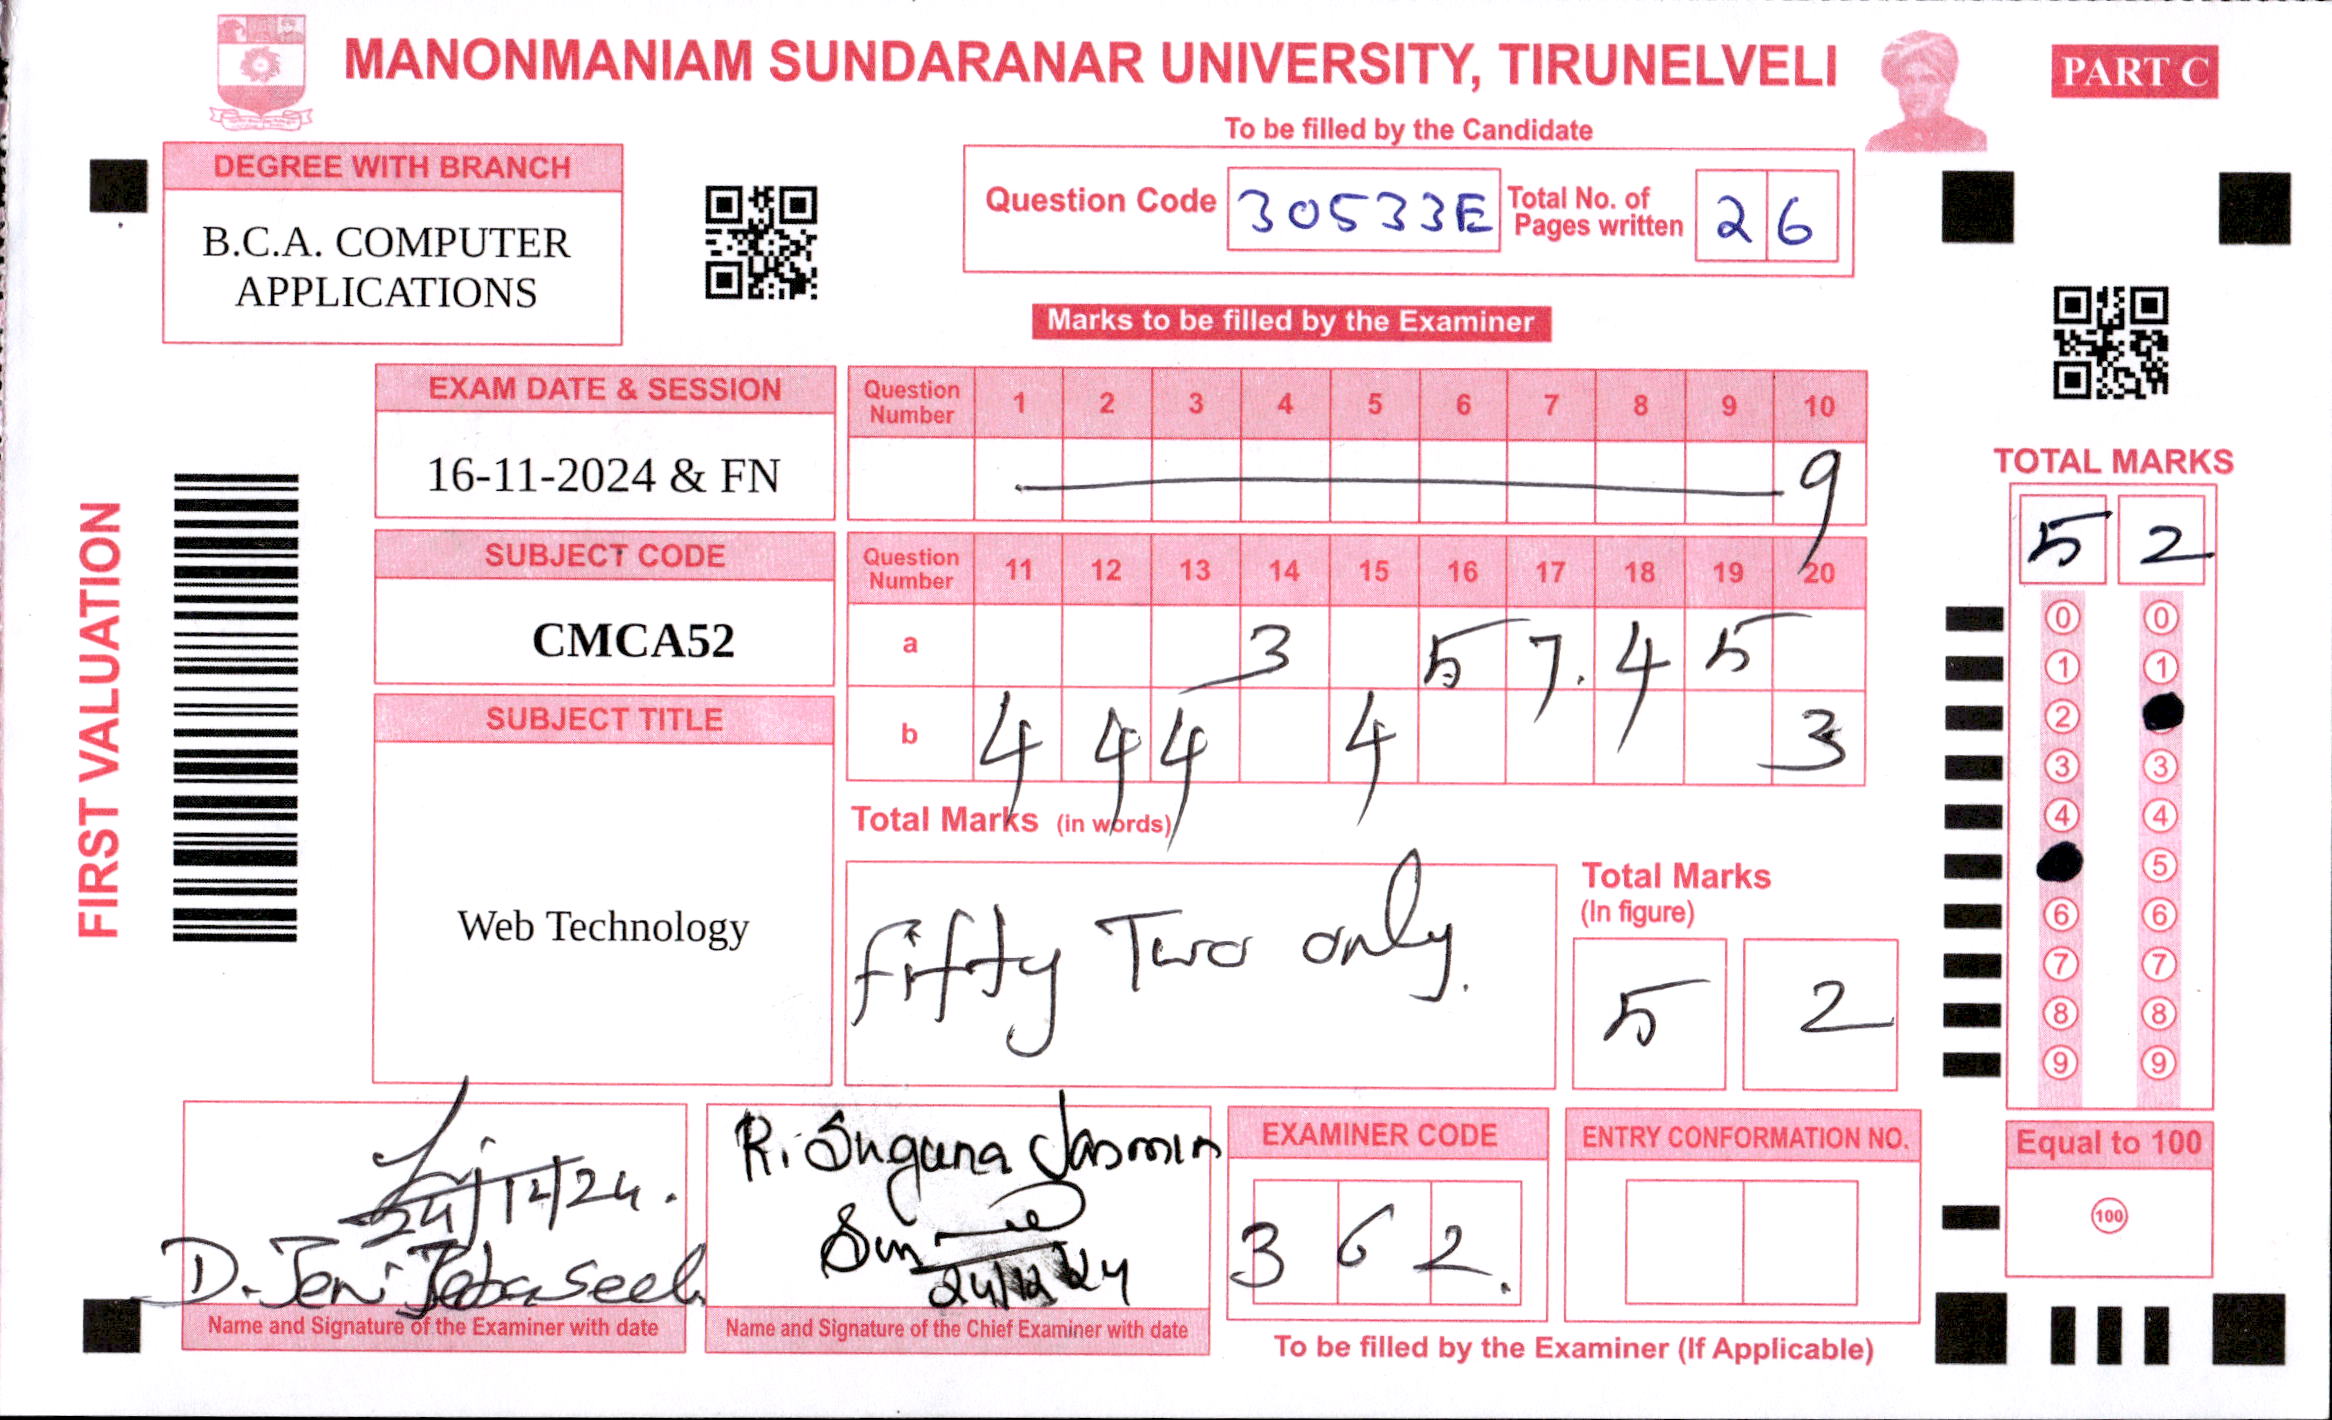 MANONMANIAM SUNDARANAR UNIVERSITY, TIRUNELVELI
PART C
To be filled by the Candidate
DEGREE WITH BRANCH
B.C.A. COMPUTER
APPLICATIONS
Question Code 30533E Total No. of Pages written 26
Marks to be filled by the Examiner
EXAM DATE & SESSION
16-11-2024 & FN
SUBJECT CODE
CMCA52
SUBJECT TITLE
Web Technology
FIRST VALUATION
Question Number 1 2 3 4 5 6 7 8 9 10
9
Question Number 11 12 13 14 15 16 17 18 19 20
a 3 5 7. 4 5
b 4 4 4 4 3
Total Marks (in words)
Fifty Two only.
Total Marks
(In figure)
5 2
TOTAL MARKS
5 2
0 0
1 1
2
3 3
4 4
5
6 6
7 7
8 8
9 9
Equal to 100
100
24/12/24.
D. Jeni Jebaseeli
Name and Signature of the Examiner with date
R. Suguna Jasmin
24/12/24
Name and Signature of the Chief Examiner with date
EXAMINER CODE
3 6 2.
ENTRY CONFORMATION NO.
To be filled by the Examiner (If Applicable)